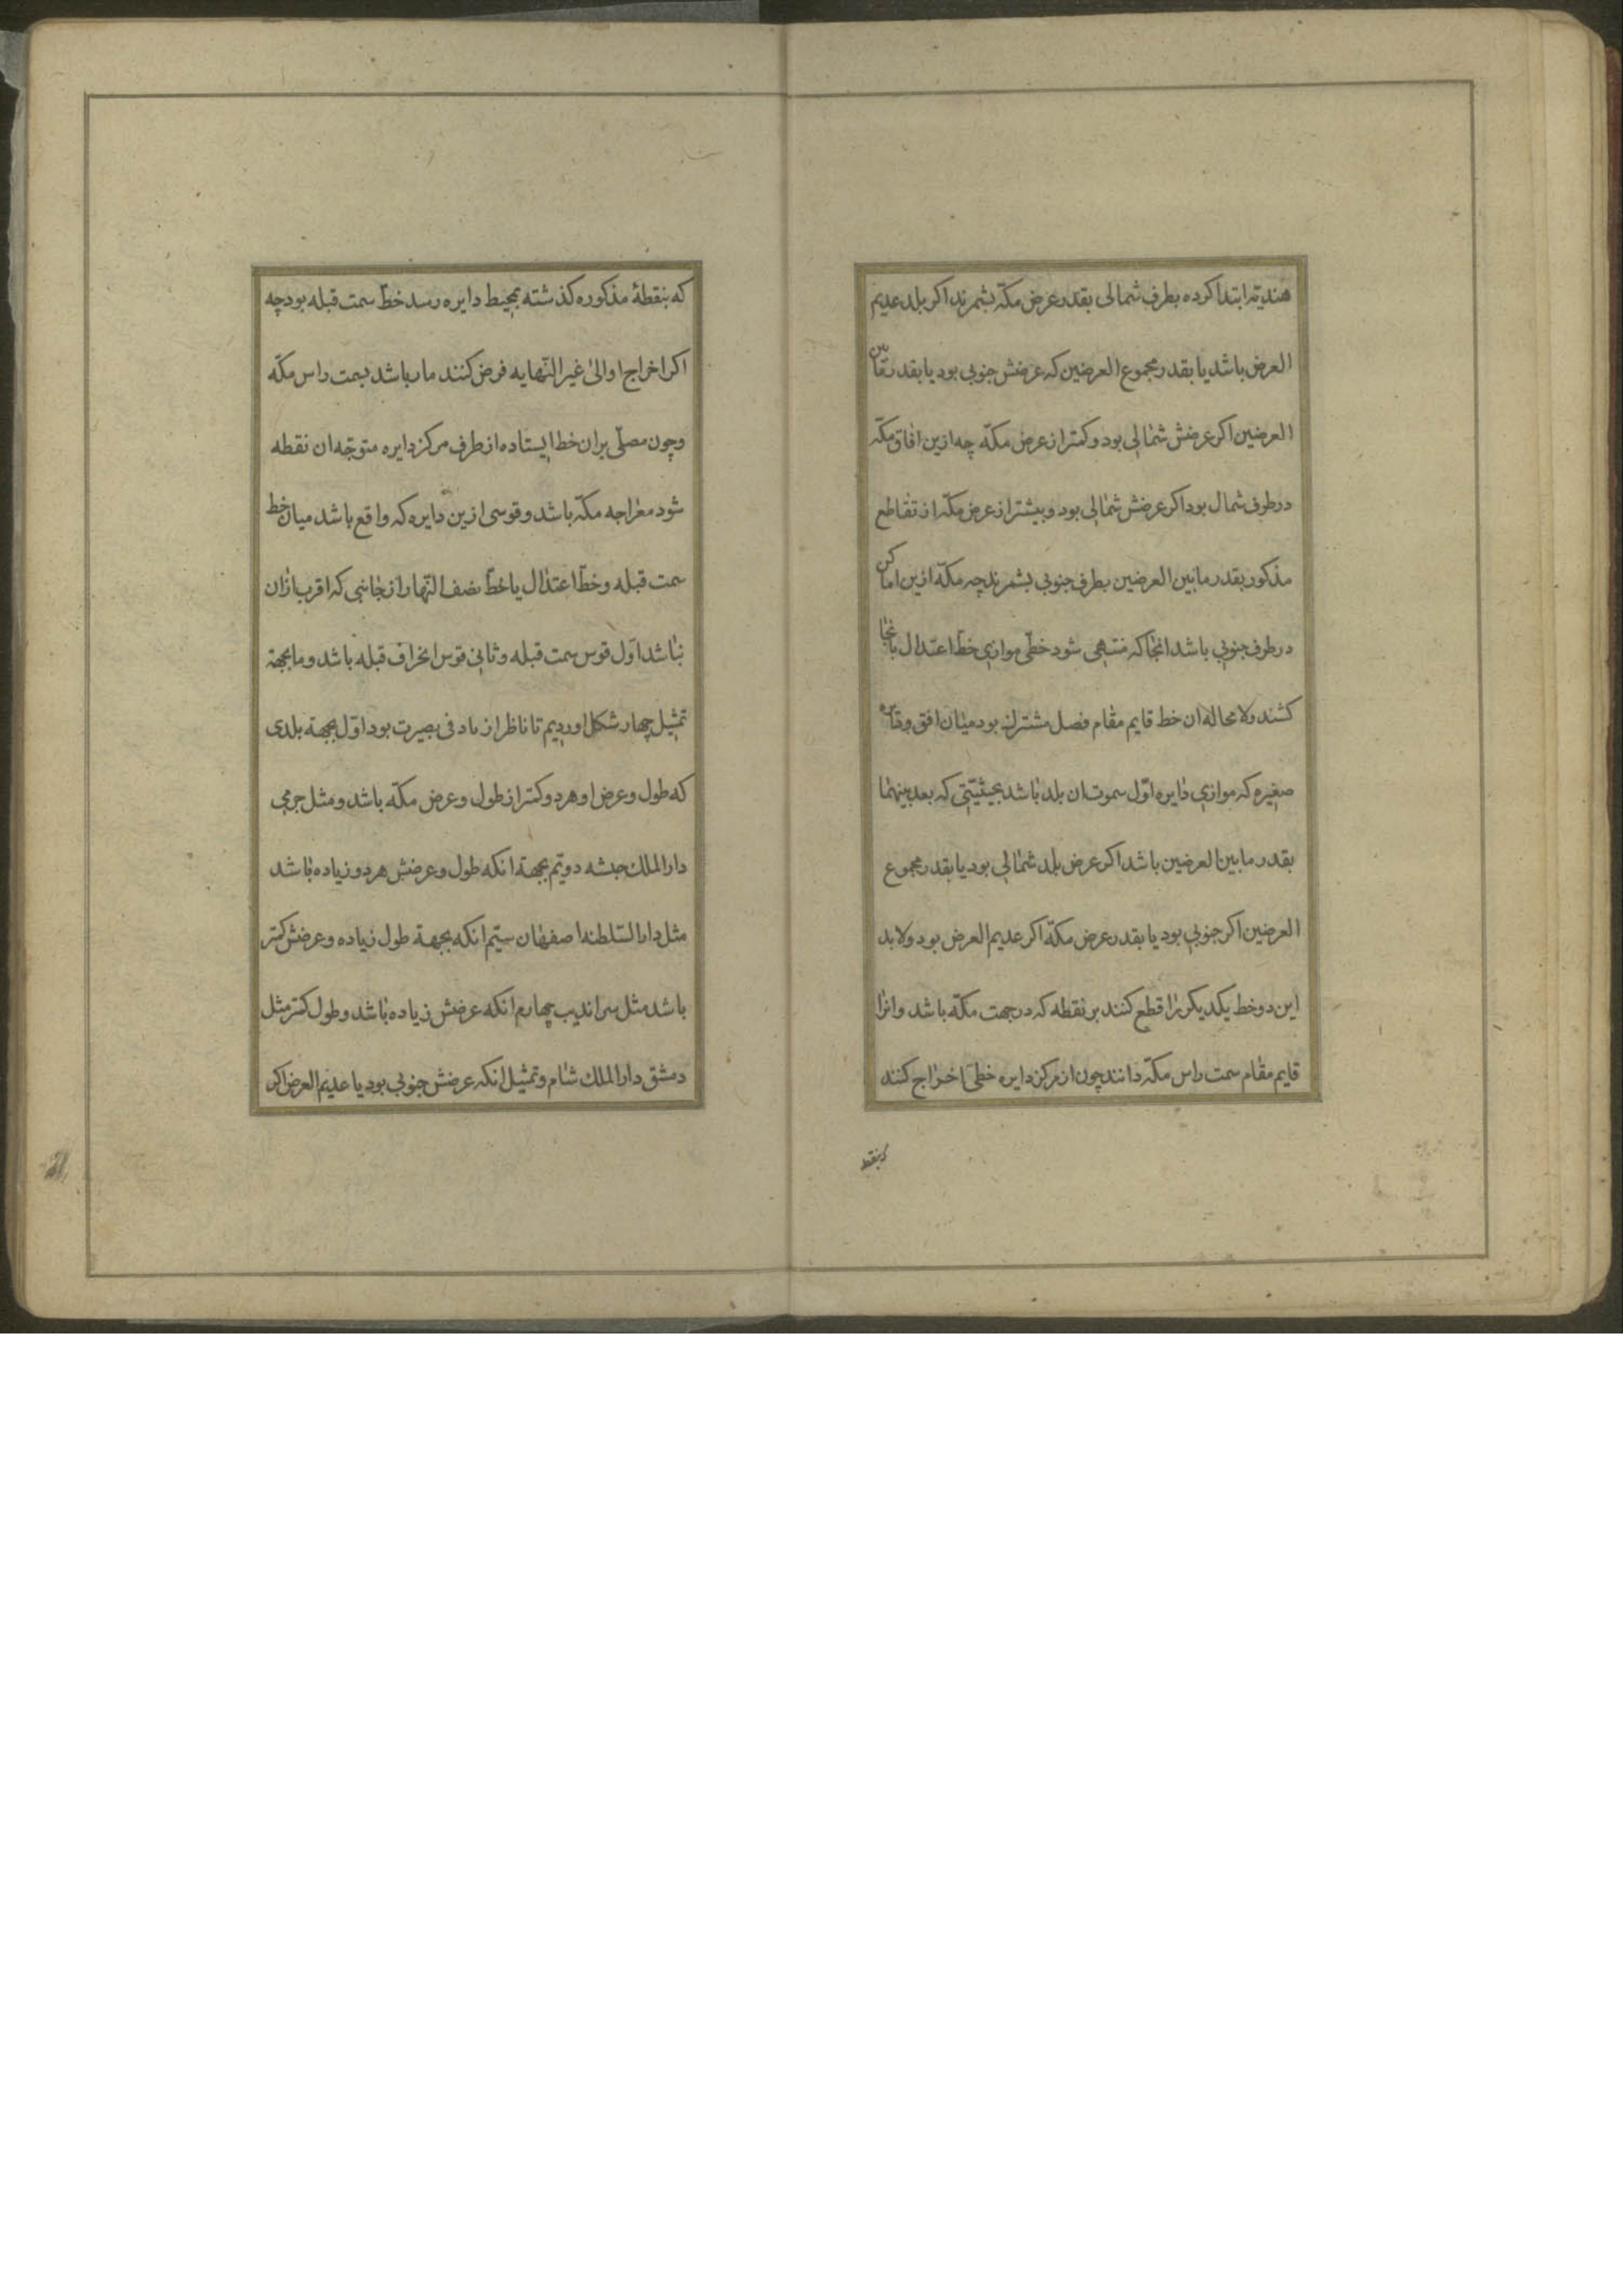 هندیّه ابتدا کرده بطرف شمالی بقدر عرض مکّه بشمرند اکر بلد عدیم
العرض باشد یا بقدر مجموع العرضین که عرضش جنوبی بود یا بقدر تفاضل
العرضین اکر عرضش شمالی بود و کمتر از عرض مکّه چه ازین افاق مکّه
در طرف شمال بود اکر عرضش شمالی بود و بیشتر از عرض مکّه از تقاطع
مذکور بقدر مابین العرضین بطرف جنوبی بشمرند چه مکّه ازین اماکن
در طرف جنوبی باشد انجا که منتهی شود خطّی موازی خطّ اعتدال بانجا
کشند ولا محاله ان خط قایم مقام فصل مشترک بود میان افق و دایره
صغیره که موازی دایره اوّل سموت ان بلد باشد بحیثیّتی که بعد بینهما
بقدر مابین العرضین باشد اکر عرض بلد شمالی بود یا بقدر مجموع
العرضین اکر جنوبی بود یا بقدر عرض مکّه اکر عدیم العرض بود ولابد
این دو خط یکدیکر را قطع کنند بر نقطه که در جهت مکّه باشد و انرا
قایم مقام سمت راس مکّه دانند چون از مرکز دایره خطّی اخراج کنند
که بنقطه
که بنقطهٔ مذکوره کذشته بمحیط دایره رسد خطّ سمت قبله بود چه
اکر اخراج او الیٰ غیر النّهایه فرض کنند مار باشد بسمت راس مکّه
و چون مصلّی بران خط ایستاده از طرف مرکز دایره متوجّه ان نقطه
شود مواجه مکّه باشد و قوسی ازین دایره که واقع باشد میان خط
سمت قبله و خطّ اعتدال یا خطّ نصف النّهار از جانبی که اقرب ازان
نباشد اوّل قوس سمت قبله و ثانی قوس انحراف قبله باشد و ما بجهة
تمثیل چهار شکل اوردیم تا ناظر از ماد فی بصیرت بود اوّل بجهة بلدی
که طول و عرض او هر دو کمتر از طول و عرض مکّه باشد و مثل جرمی
دار الملک حبشه دویّم بجهة انکه طول و عرضش هر دو زیاده باشد
مثل دار السّلطنه اصفهان سیّم انکه بجهة طول زیاده و عرضش کمتر
باشد مثل سراندیب چهارم انکه عرضش زیاده باشد و طول کمتر مثل
دمشق دار الملک شام و تمثیل انکه عرضش جنوبی بود یا عدیم العرض اکر